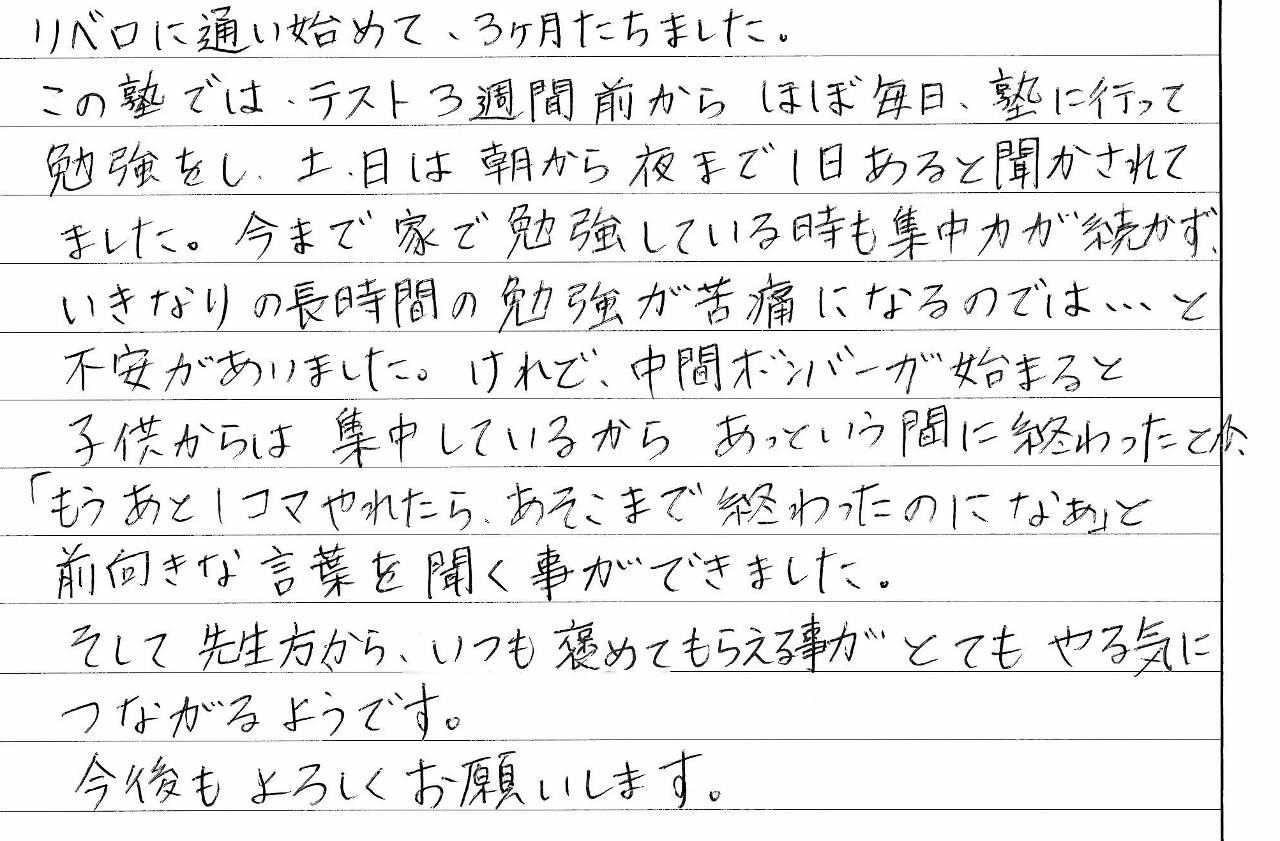 リベロに通い始めて、3ヶ月たちました。
この塾では、テスト3週間前から ほぼ毎日、塾に行って
勉強をし、土、日は朝から夜まで1日あると聞かされて
ました。今まで家で勉強している時も集中力が続かず、
いきなりの長時間の勉強が苦痛になるのでは…と
不安がありました。けれど、中間ボンバーが始まると
子供からは集中しているから あっという間に終わったとか、
「もうあと1コマやれたら、あそこまで終わったのになぁ」と
前向きな言葉を聞く事ができました。
そして先生方から、いつも褒めてもらえる事がとてもやる気に
つながるようです。
今後もよろしくお願いします。